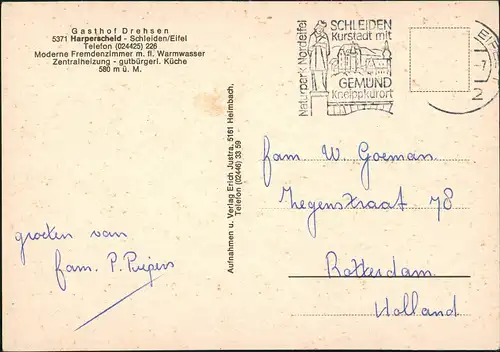 Gasthof Drehsen
5371 Harperscheid - Schleiden/Eifel
Telefon (024425) 226
Moderne Fremdenzimmer m. fl. Warmwasser
Zentralheizung - gutbürgerl. Küche
580 m ü. M.
Naturpark Nordeifel
SCHLEIDEN
Kurstadt mit
GEMÜND
Kneippkurort
2
Aufnahmen u. Verlag Erich Justra, 5161 Heimbach,
Telefon (02446) 33 59
fam. W. Goeman
straat 78
Rotterdam
Holland
groeten van
fam. P.